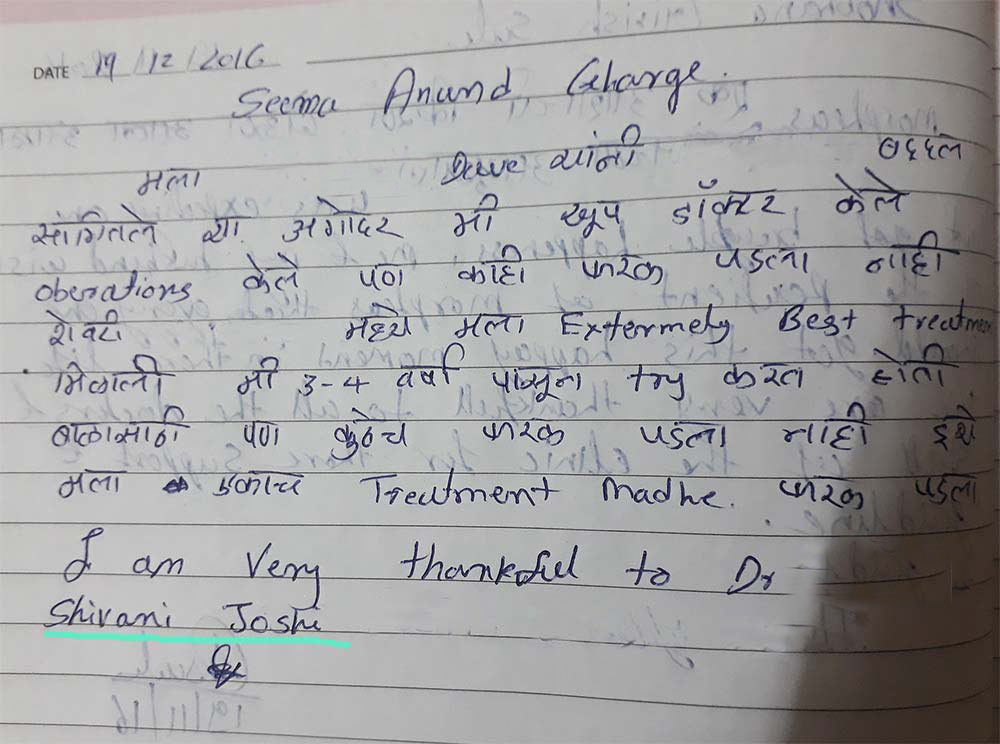 DATE 19/12/2016
Seema Anand Gharge.
मला Dave यांनी बद्दल
सांगितले या अगोदर मी खूप डॉक्टर केले
oberations केले पण काही फरक पडला नाही
शेवटी मध्ये मला Extermely Best treatmen
मिळाली मी 3-4 वर्षा पासून try करत होती
बाळासाठी पण कुठेच फरक पडला नाही इथे
मला एकाच Treatment madhe. फरक पडला
I am Very thankful to Dr
Shivani Joshi
19/11/16